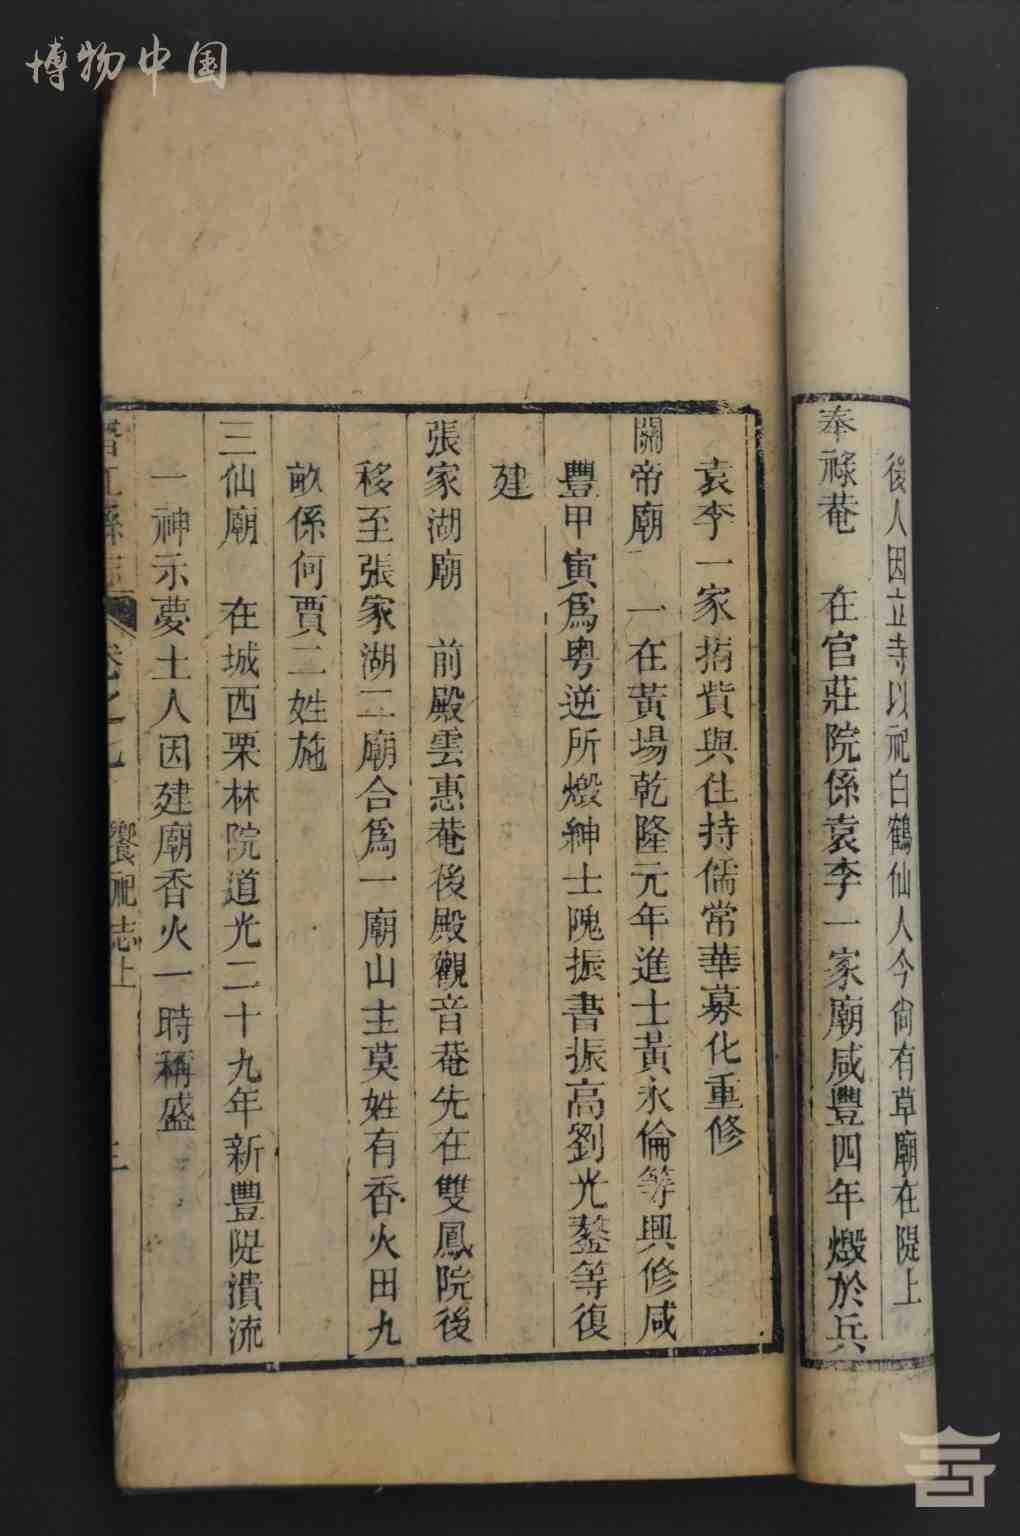 博物中国
後人因立寺以祀白鶴仙人今尙有草廟在隄上
奉祿菴 在官莊院係袁李一家廟咸豐四年燬於兵
袁李一家捐貲與住持儒常華募化重修
關帝廟 一在黃場乾隆元年進士黃永倫等興修咸
豐甲寅爲粵逆所燬紳士隗振書振高劉光鏊等復
建
張家湖廟 前殿雲惠菴後殿觀音菴先在雙鳳院後
移至張家湖二廟合爲一廟山主莫姓有香火田九
畝係何賈二姓施
三仙廟 在城西栗林院道光二十九年新豐隄潰流
一神示夢土人因建廟香火一時稱盛
江縣志 卷之七 饗祀志上